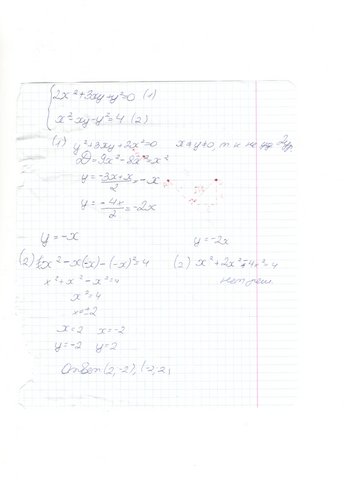 2x²+3xy+y²=0 (1)
x²-xy-y²=4 (2)
(1) y²+3xy+2x²=0 x и y≠0, т.к не
D=9x²-8x²=x²
y=(-3x+x)/2=-x
y=-4x/2=-2x
y=-x y=-2x
(2) x²-x(-x)-(-x)²=4 (2) x²+2x²-4x²=4
x²+x²-x²=4 нет реш.
x²=4
x=±2
x=2 x=-2
y=-2 y=2
Ответ (2;-2), (-2;2